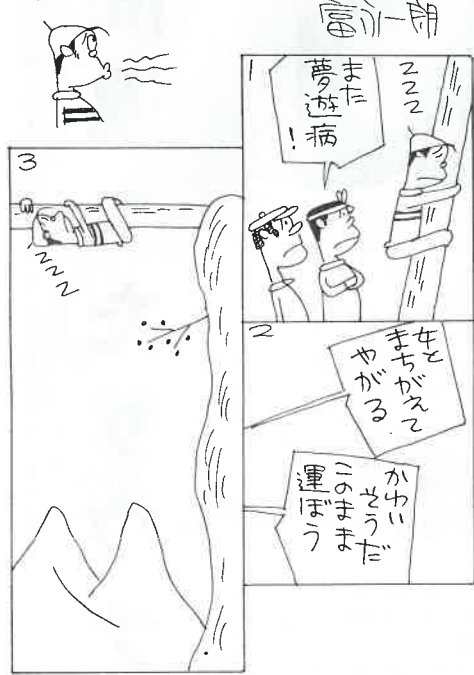 富永一朗
1
また
夢遊病
!
ZZZ
2
女と
まちがえて
やがる.
かわい
そうだ
このまま
運ぼう
3
ZZZ